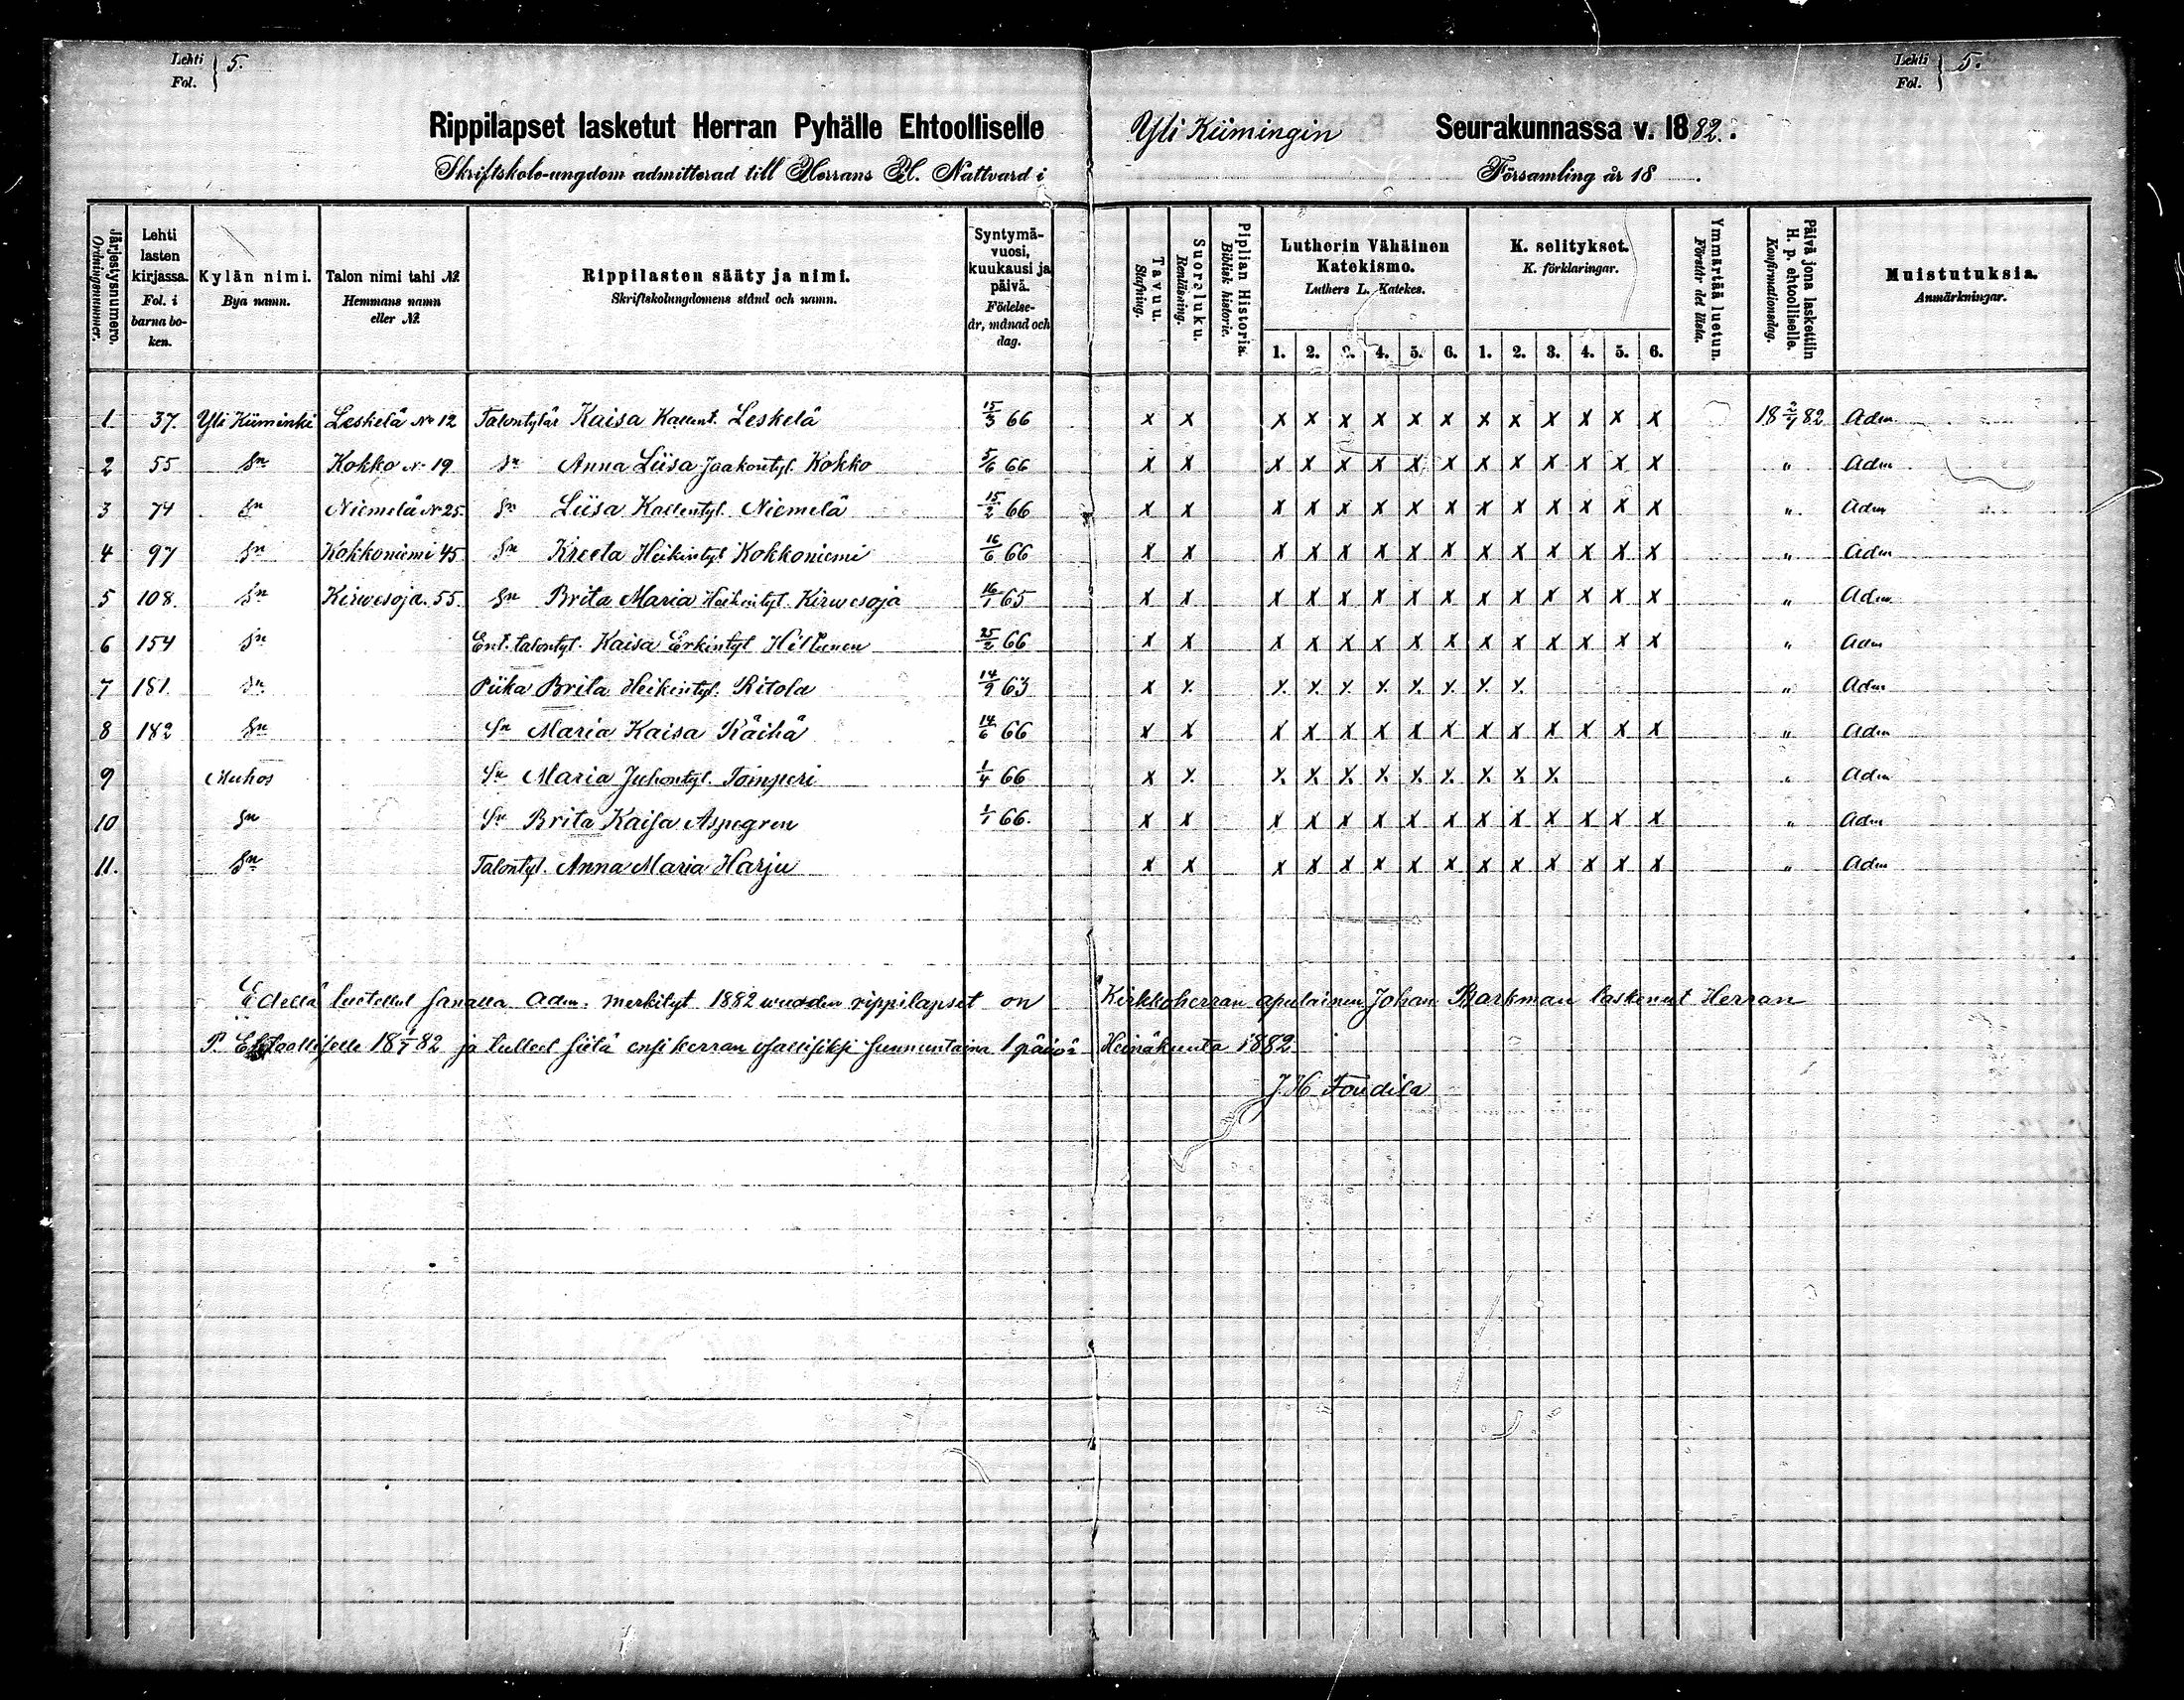 Lehti Fol. } 5.
Lehti Fol. } 5.
Rippilapset lasketut Herran Pyhälle Ehtoolliselle Yli Kiimingin Seurakunnassa v. 1882.
Skriftskole-ungdom admitterad till Herrans H. Nattvard i Församling år 18 .
Järjestysnumero. Ordningsnummer.
Lehti lasten kirjassa. Fol. i barna boken.
Kylän nimi. Bya namn.
Talon nimi tahi №. Hemmans namn eller №.
Rippilasten sääty ja nimi. Skriftskolungdomens stånd och namn.
Syntymävuosi, kuukausi ja päivä. Födelse-år, månad och dag.
Tavuu. Stafning.
Suoraluku. Renläsning.
Piplian Historia. Biblisk historie.
Lutherin Vähäinen Katekismo. Luthers L. Katekes.
K. selitykset. K. förklaringar.
Ymmärtää luetun. Förstår det lästa.
Päivä jona laskettiin H. p. ehtoolliselle. Konfirmationsdag.
Muistutuksia. Anmärkningar.
1. 2. 3. 4. 5. 6. 1. 2. 3. 4. 5. 6.
1 37. Yli Kiiminki Leskelä No 12 Talontytär Kaisa Kallent. Leskelä 15/3 66 x x x x x x x x x x x x x x 18 2/7 82 Adm
2 55 Sn Kokko No 19 Sn Anna Liisa Jaakontyt. Kokko 5/6 66 x x x x x x x x x x x x x x " Adm
3 74 Sn Niemelä No 25. Sn Liisa Kallentyt. Niemelä 15/2 66 x x x x x x x x x x x x x x " Adm
4 97 Sn Kokkoniemi 45 Sn Kreeta Heikintyt Kokkoniemi 16/6 66 x x x x x x x x x x x x x x " Adm
5 108. Sn Kirwesoja. 55. Sn Brita Maria Heikintyt. Kirwesoja 16/1 65 x x x x x x x x x x x x x x " Adm
6 154 Sn Ent. talontyt. Kaisa Erkintyt Hiltunen 25/2 66 x x x x x x x x x x x x x x " Adm
7 181. Sn Piika Brita Heikintyt. Ritola 14/9 63 x x x x x x x x x x " Adm
8 182 Sn Sn Maria Kaisa Räihä 14/6 66 x x x x x x x x x x x x x x " Adm
9 Muhos Sn Maria Juhontyt. Tomperi 1/4 66 x x x x x x x x x x x " Adm
10 Sn Sn Brita Kaisa Aspegren 1/1 66. x x x x x x x x x x x x x x " Adm
11. Sn Talontyt. Anna Maria Harju x x x x x x x x x x x x x x " Adm
Edellä luetellut sanalla Adm. merkityt 1882 wuoden rippilapset on Kirkkoherran apulainen Johan Barkman laskenut Herran
P. Ehtoolliselle 18 1/7 82 ja tulleet siitä ensi kerran osallisiksi sunnuntaina 1 päivä Heinäkuuta 1882